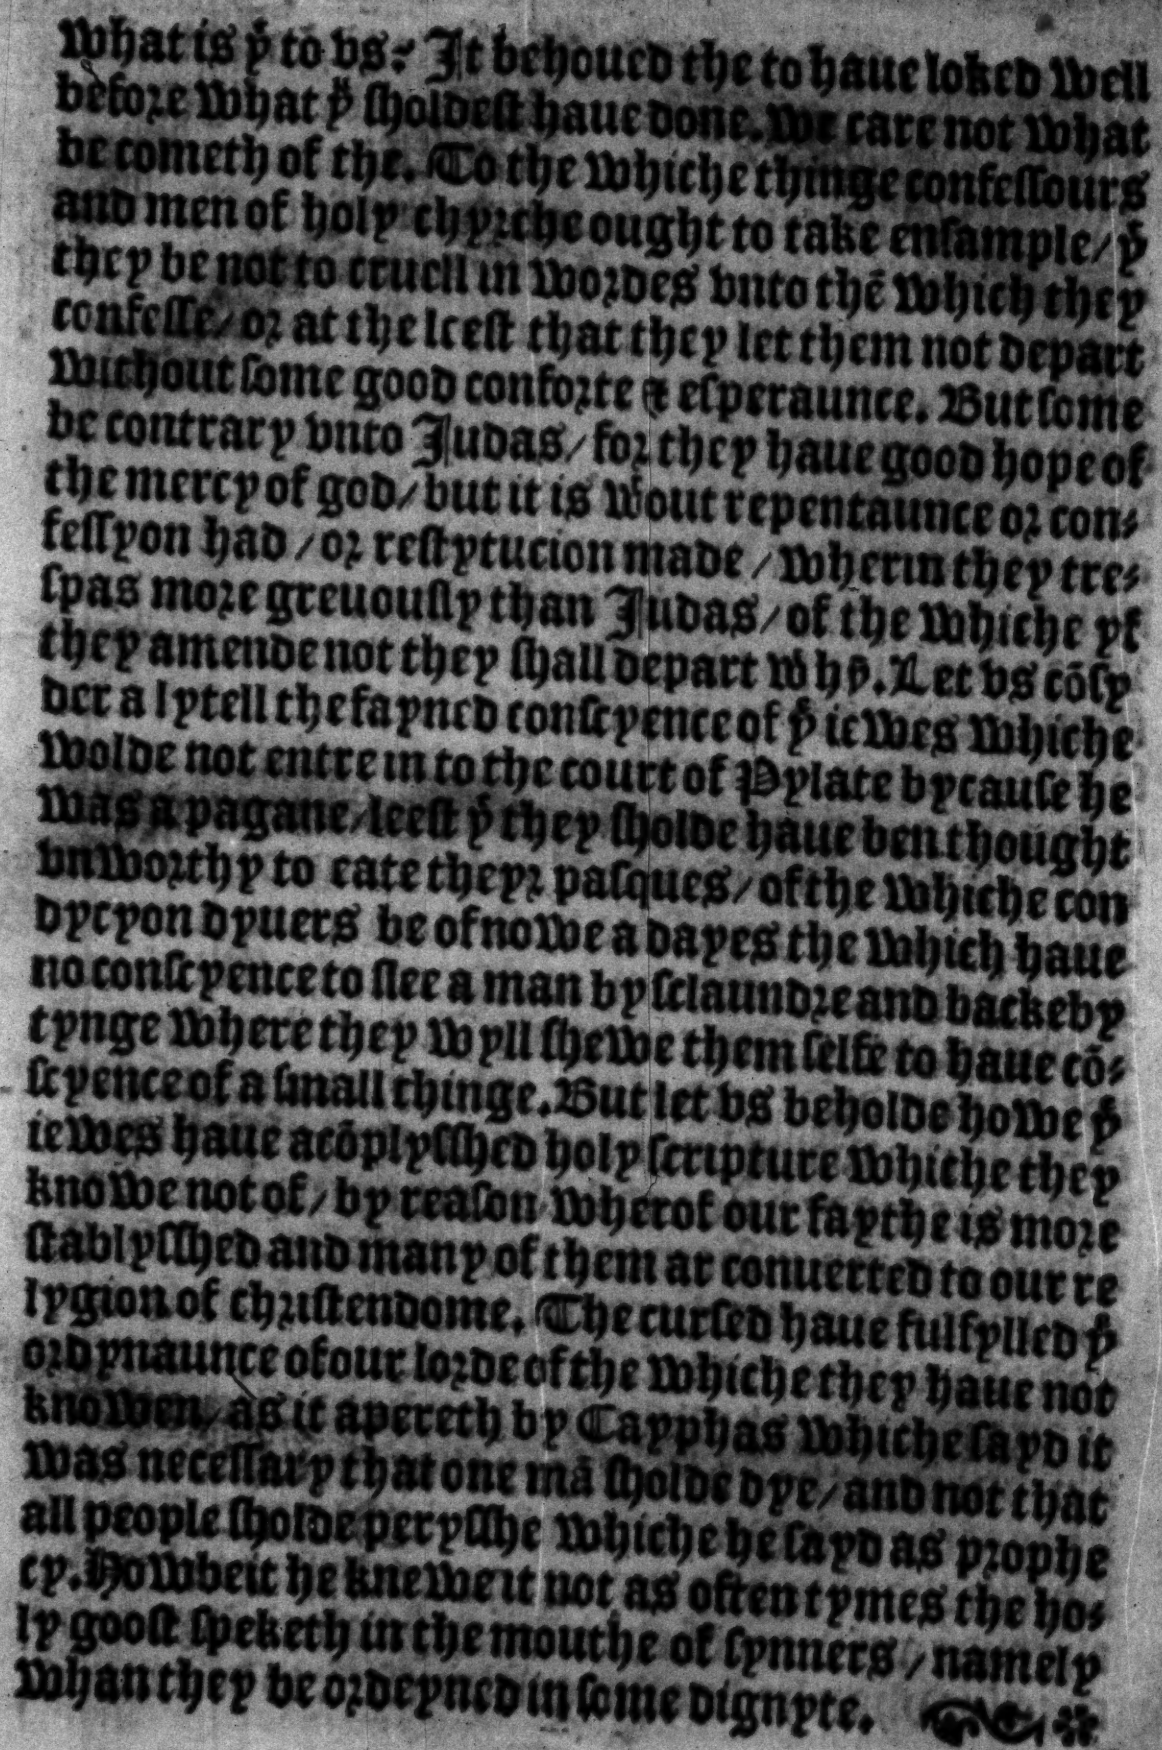 what is yͭ to vs? It behoued the to haue loked well
before what yͧ sholdest haue done. We care not what
be cometh of the. To the whiche thinge confessours
and men of holy chyrche ought to take ensample/ yͭ
they be not to cruell in wordes vnto thē which they
confesse/ or at the leest that they let them not depart
without some good conforte ⁊ esperaunce. But some
be contrary vnto Judas/ for they haue good hope of
the mercy of god/ but it is wͭout repentaunce or con⸗
fessyon had / or restytucion made / wherin they tre⸗
spas more greuously than Judas/ of the whiche yf
they amende not they shall depart wͭ hȳ. Let vs cōsy
der a lytell the fayned conscyence of yͤ iewes whiche
wolde not entre in to the court of Pylate bycause he
was a pagane/ leest yͭ they sholde haue ben thought
vnworthy to eate theyr pasques/ of the whiche con
dycyon dyuers be of nowe a dayes the which haue
no conscyence to slee a man by sclaundre and backeby
tynge where they wyll shewe them selfe to haue cō⸗
scyence of a small thinge. But let vs beholde howe yͤ
iewes haue acōplysshed holy scripture whiche they
knowe not of/ by reason wherof our faythe is more
stablysshed and many of them ar conuerted to our re
lygion of christendome. The cursed haue fulfylled yͤ
ordynaunce of our lorde of the whiche they haue not
knowen/ as it apereth by Cayphas whiche sayd it
was necessary that one mā sholde dye/ and not that
all people sholde perysshe whiche he sayd as prophe
cy. Howbeit he knewe it not as often tymes the ho⸗
ly goost speketh in the mouthe of synners / namely
whan they be ordeyned in some dignyte.